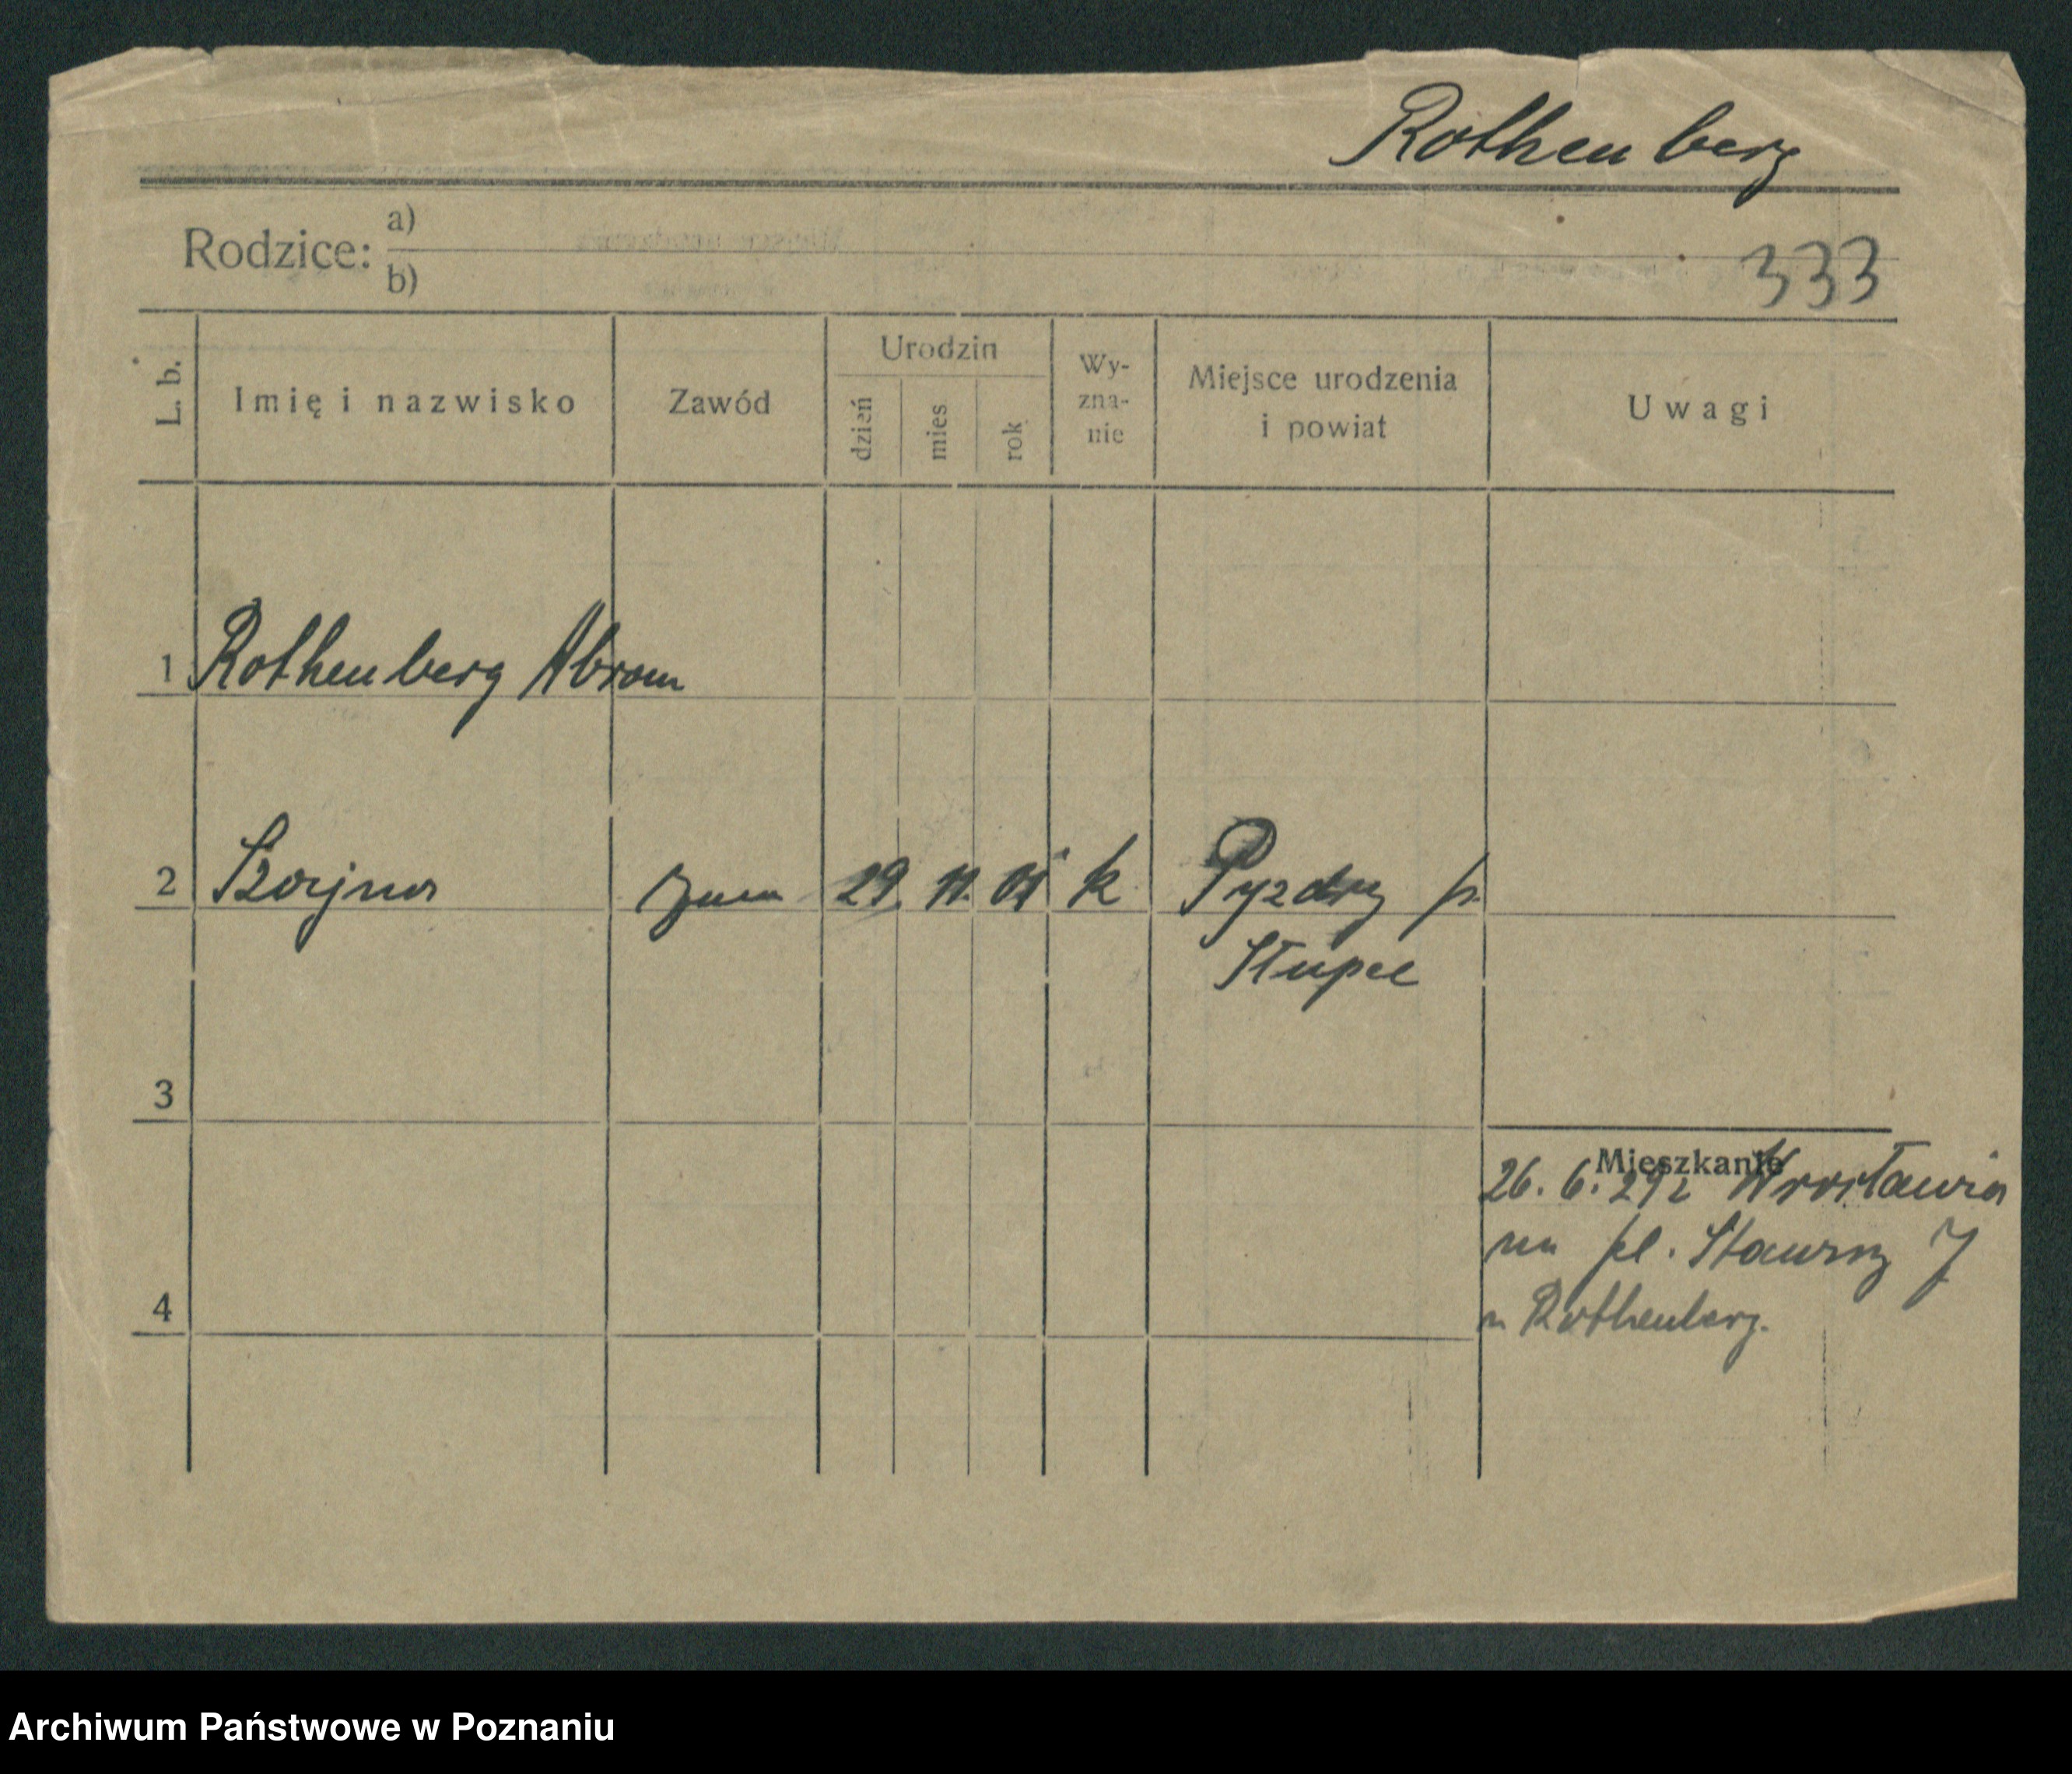 Rothenberg
Rodzice: a)
b)
333
L. b.
Imię i nazwisko
Zawód
Urodzin
dzień
mies
rok
Wy-
zna-
nie
Miejsce urodzenia
i powiat
Uwagi
1 Rothenberg Abram
2 Szajna 29. 11. 01 k Pyzdry p.
Słupce
3
Mieszkanie
26. 6. 29 z Wrocławia
na pl. Stawny 7
u Rothenberg.
4
Archiwum Państwowe w Poznaniu